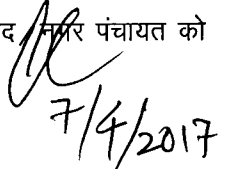 द नगर पंचायत को
7/4/2017